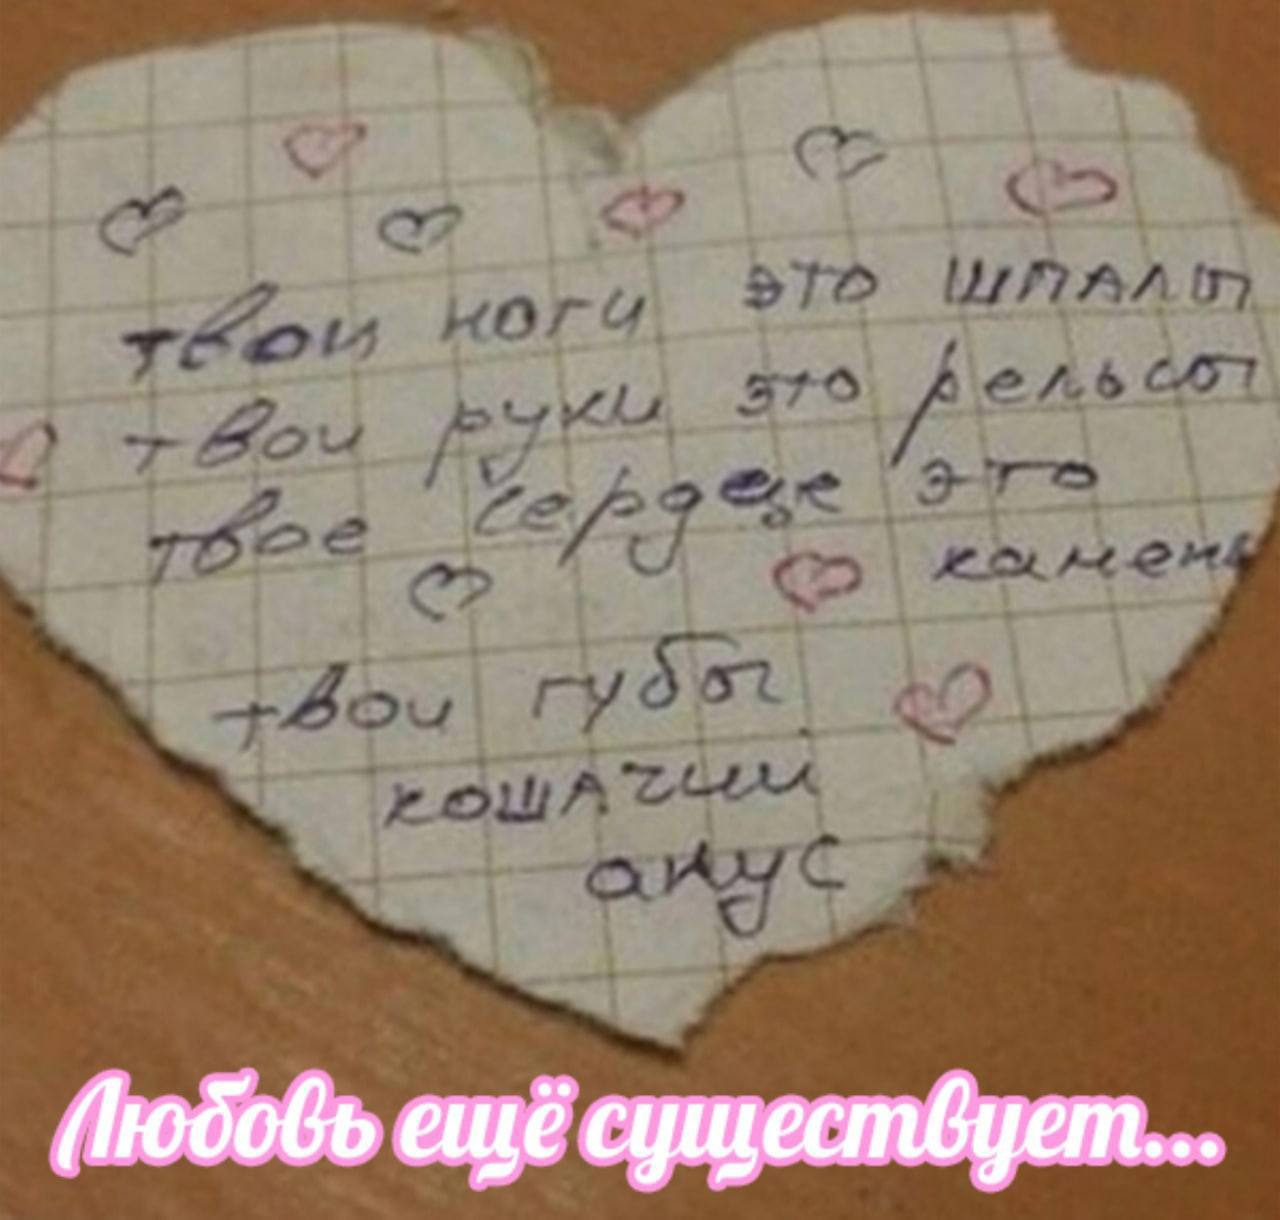 твои ноги это шпалы
твои руки это рельсы
твое сердце это
камень
твои губы
кошачии
анус
Любовь ещё существует...